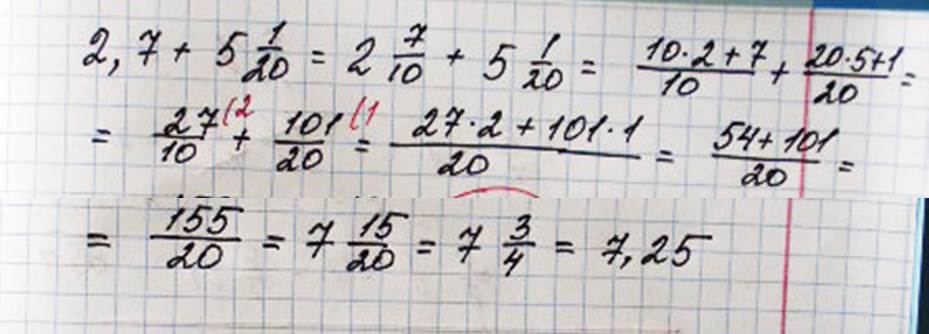 2,7 + 5 1/20 = 2 7/10 + 5 1/20 = (10·2+7)/10 + (20·5+1)/20 =
= 27/10 (2 + 101/20 (1 = (27·2 + 101·1)/20 = (54+101)/20 =
= 155/20 = 7 15/20 = 7 3/4 = 7,25